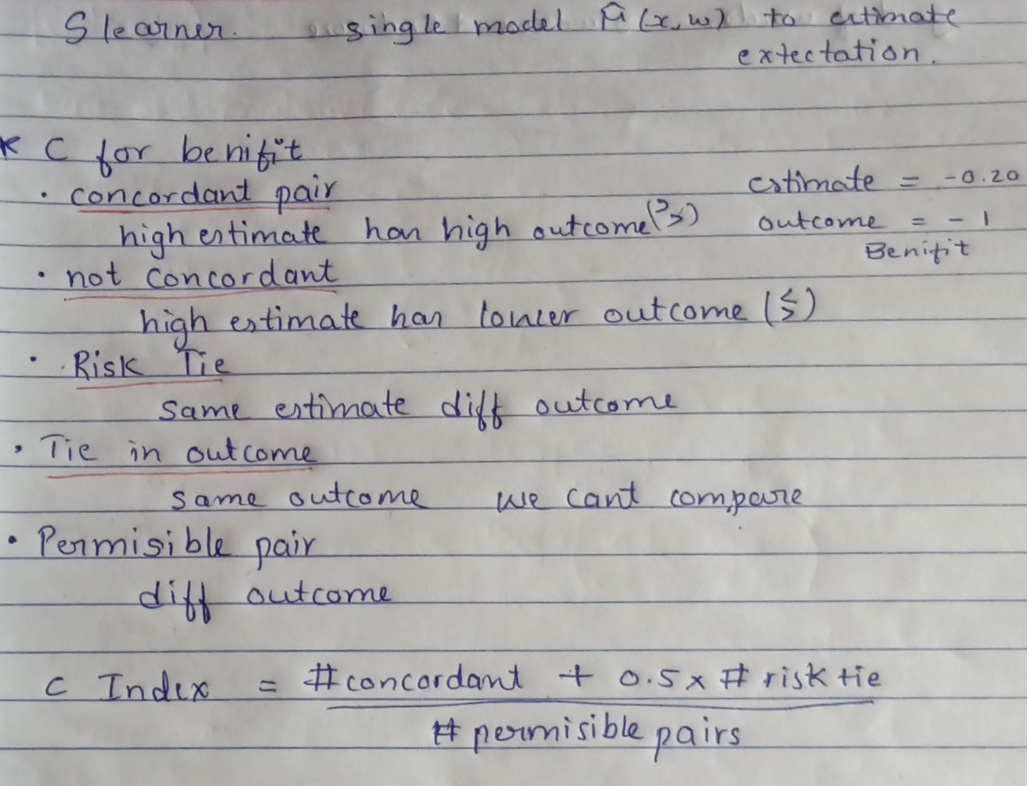 S learner. single model μ̂ (x, w) to estimate
extectation.
* C for benifit
• concordant pair
estimate = -0.20
high estimate has high outcome (>>)
outcome = - 1
Benifit
• not concordant
high estimate has lower outcome (<>)
• Risk Tie
same estimate diff outcome
• Tie in outcome
same outcome we cant compare
• Permisible pair
diff outcome
C Index = #concordant + 0.5 x # risk tie
# permisible pairs